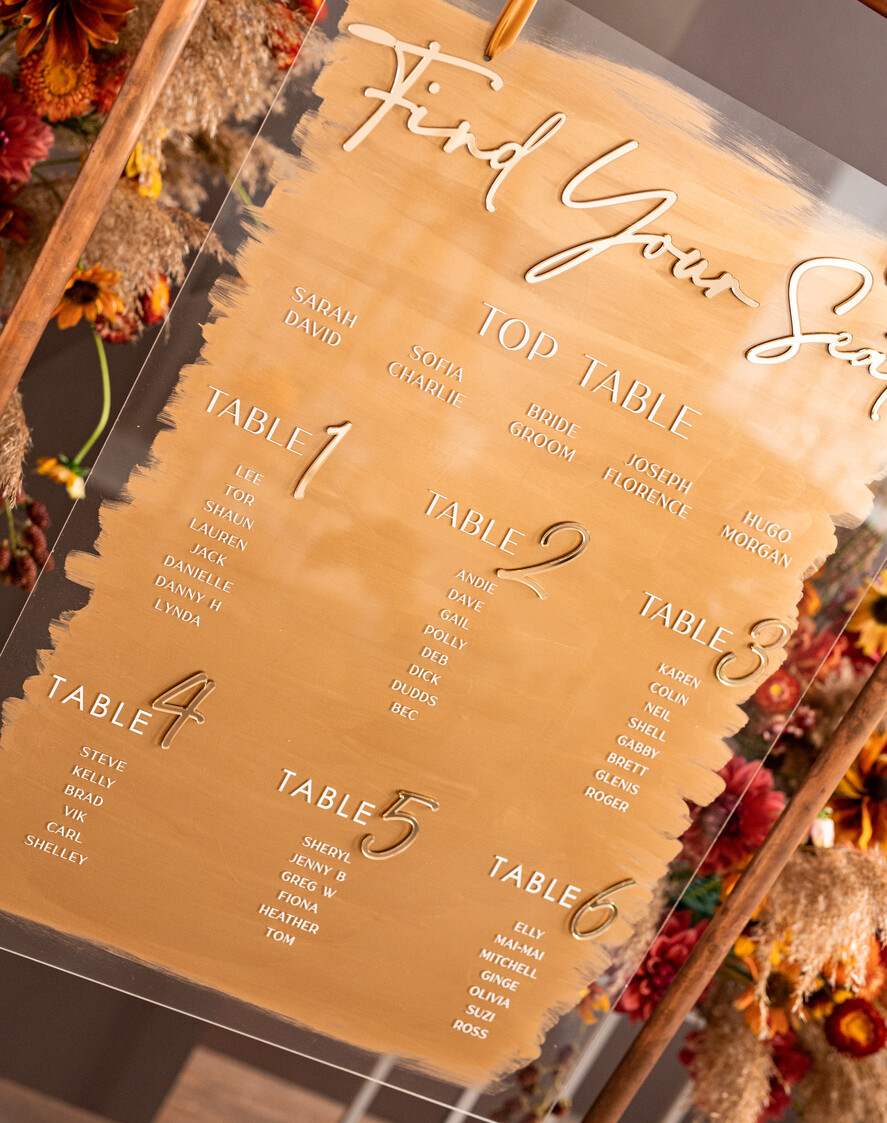 Find Your Seat
TOP TABLE
SARAH
DAVID
SOFIA
CHARLIE
BRIDE
GROOM
JOSEPH
FLORENCE
HUGO
MORGAN
TABLE 1
LEE
TOR
SHAUN
LAUREN
JACK
DANIELLE
DANNY H
LYNDA
TABLE 2
ANDIE
DAVE
GAIL
POLLY
DEB
DICK
DUDDS
BEC
TABLE 3
KAREN
COLIN
NEIL
SHELL
GABBY
BRETT
GLENIS
ROGER
TABLE 4
STEVE
KELLY
BRAD
VIK
CARL
SHELLEY
TABLE 5
SHERYL
JENNY B
GREG W
FIONA
HEATHER
TOM
TABLE 6
ELLY
MAI-MAI
MITCHELL
GINGE
OLIVIA
SUZI
ROSS